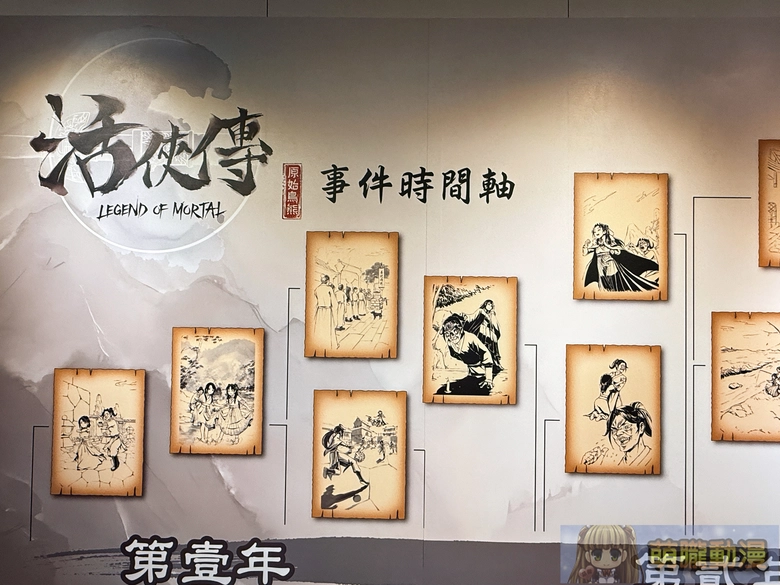 活俠傳
LEGEND OF MORTAL
原始鳥熊
事件時間軸
第壹年
第貳年
萌朧動漫